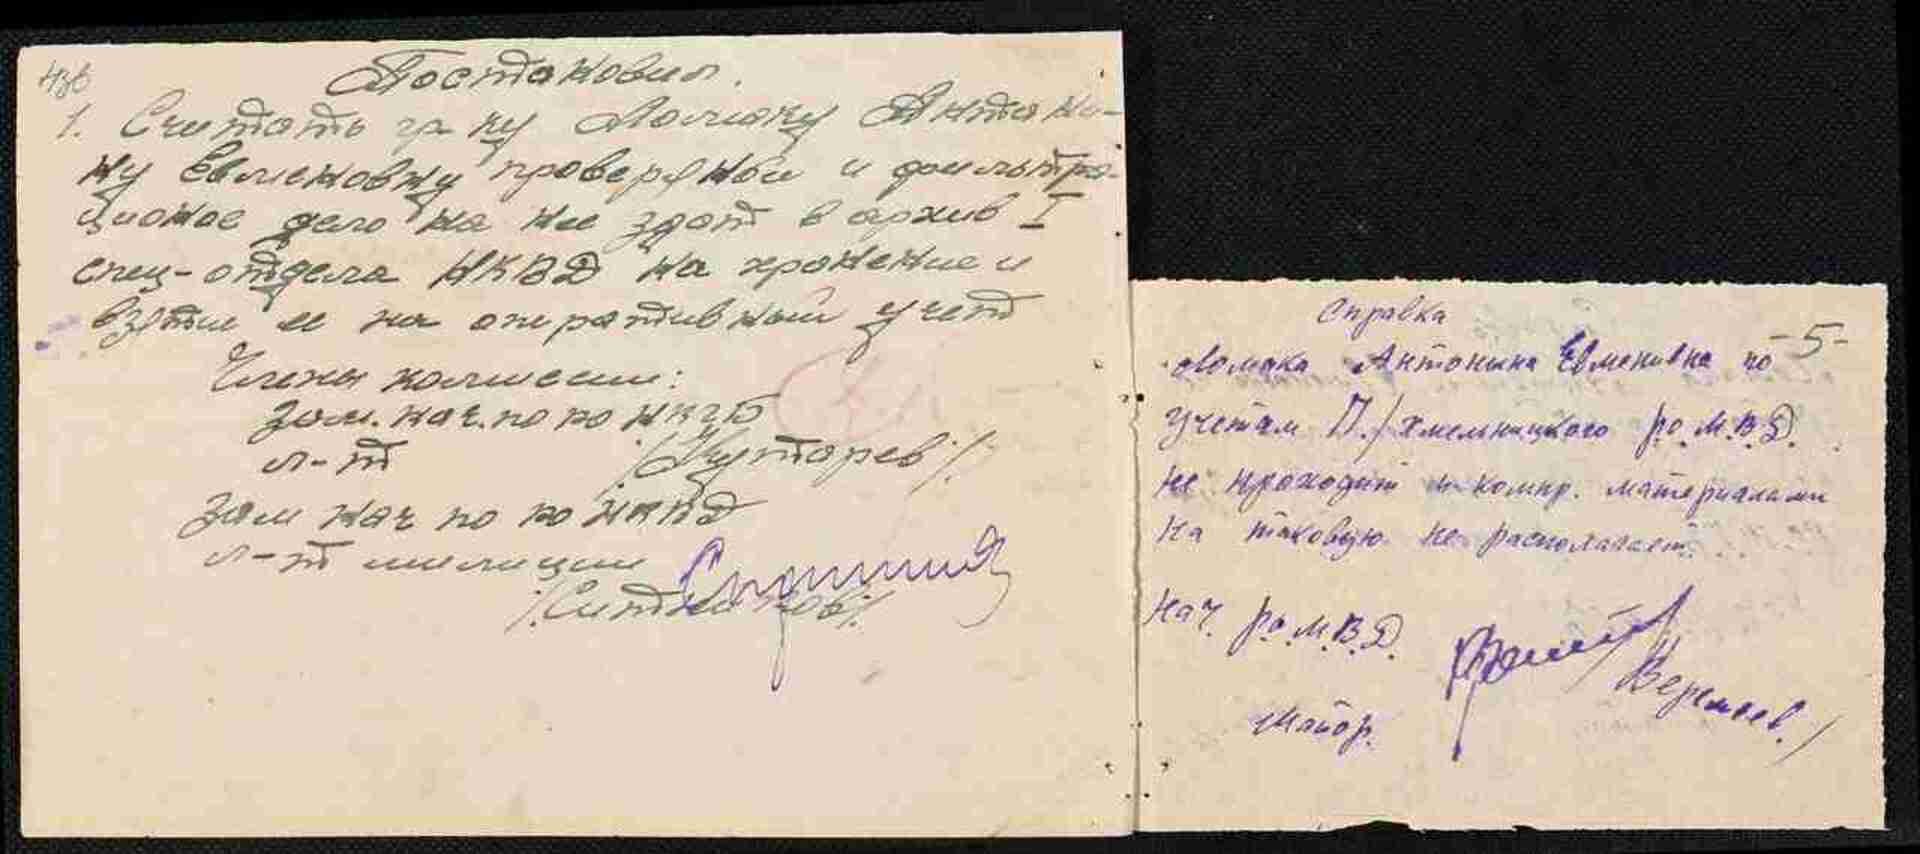 436
Постановил.
1. Считать гр-ку Ломаку Антони-
ну Евменовну проверяной и фильтра-
ционое дело на нее здат в архив I
спец-отдела НКВД на хронение и
взяти ее на опиративный учет
Члены комиссии:
Зам. нач. по ро НКГБ
л-т /Кутарев/
Зам нач по ро НКВД
л-т милиции
/Ситников/
Справка
-5-
Ломака Антонина Евменивна по
учетам П./Хмельницкого р.о. М.В.Д.
не проходит и компр. материалами
на таковую не располагает.
Нач. р.о. М.В.Д.
Майор. Веремеев./